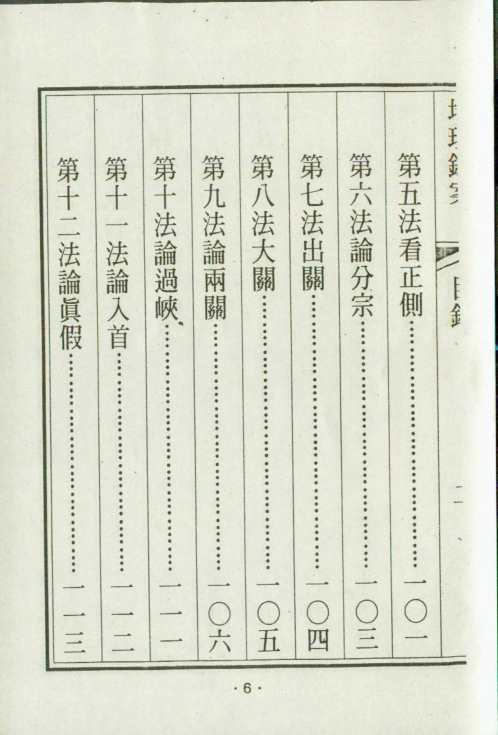 目錄
二
第五法看正側……一〇一
第六法論分宗……一〇三
第七法出關……一〇四
第八法大關……一〇五
第九法論兩關……一〇六
第十法論過峽、……一一一
第十一法論入首……一一二
第十二法論眞假……一一三
·6·